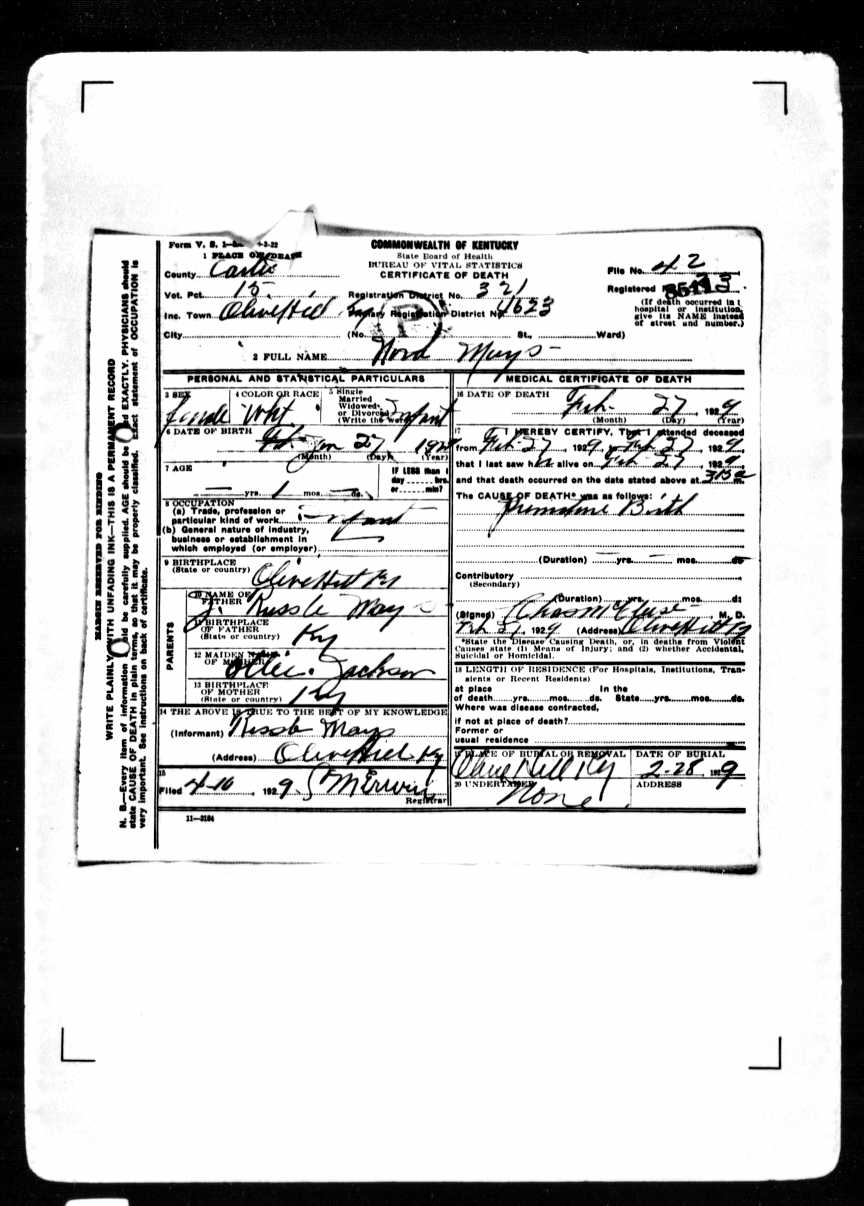 Form V. S. 1- -3-22
COMMONWEALTH OF KENTUCKY
State Board of Health
BUREAU OF VITAL STATISTICS
CERTIFICATE OF DEATH
1 PLACE OF DEATH
County Carter
Vot. Pct. 15
Inc. Town Olive Hill
City
Registration District No. 321
Primary Registration District No. 4623
(No. St., Ward)
File No. 42
Registered
(If death occurred in
hospital or institution,
give its NAME instead
of street and number.)
2 FULL NAME Nora Mays
PERSONAL AND STATISTICAL PARTICULARS
3 SEX female
4 COLOR OR RACE Wht
5 Single
Married
Widowed
or Divorced
(Write the word) Infant
6 DATE OF BIRTH Jan 27
(Month) (Day) (Year)
7 AGE
— yrs. 1 mos. — ds.
IF LESS than 1
day hrs.
or min?
8 OCCUPATION
(a) Trade, profession or
particular kind of work infant
(b) General nature of industry,
business or establishment in
which employed (or employer)
9 BIRTHPLACE
(State or country) Olive Hill Ky
PARENTS
10 NAME OF
FATHER J. Russle Mays
11 BIRTHPLACE
OF FATHER
(State or country) Ky
12 MAIDEN NAME
OF MOTHER Jackson
13 BIRTHPLACE
OF MOTHER
(State or country) Ky
14 THE ABOVE IS TRUE TO THE BEST OF MY KNOWLEDGE
(Informant) Mays
(Address) Olive Hill Ky
15
Filed 4-10, 1929
Registrar
11—3184
MEDICAL CERTIFICATE OF DEATH
16 DATE OF DEATH
Feb 27, 1929
(Month) (Day) (Year)
17 I HEREBY CERTIFY, That I attended deceased
from Feb 27, 1929, to Feb 27, 1929,
that I last saw h alive on Feb 27, 1929,
and that death occurred on the date stated above at
The CAUSE OF DEATH* was as follows:
Premature Birth
(Duration) — yrs. — mos. ds
Contributory
(Secondary)
(Duration) yrs. mos. ds
(Signed) Chas M , M. D.
Feb 27, 1929 (Address) Olive Hill Ky
*State the Disease Causing Death, or, in deaths from Violent
Causes state (1) Means of Injury; and (2) whether Accidental,
Suicidal or Homicidal.
18 LENGTH OF RESIDENCE (For Hospitals, Institutions, Tran-
sients or Recent Residents)
at place In the
of death yrs. mos. ds. State yrs. mos. ds.
Where was disease contracted,
if not at place of death?
Former or
usual residence
19 PLACE OF BURIAL OR REMOVAL Olive Hill Ky
DATE OF BURIAL
2-28, 1929
20 UNDERTAKER None
ADDRESS
MARGIN RESERVED FOR BINDING
WRITE PLAINLY WITH UNFADING INK—THIS IS A PERMANENT RECORD
N. B.—Every item of information should be carefully supplied. AGE should be stated EXACTLY. PHYSICIANS should
state CAUSE OF DEATH in plain terms, so that it may be properly classified. Exact statement of OCCUPATION is
very important. See instructions on back of certificate.